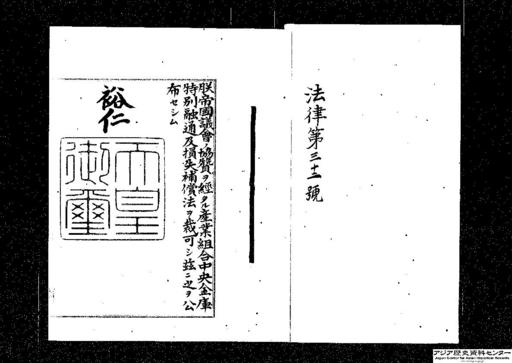 法律第三十二號
朕帝國議會ノ協贊ヲ經タル產業組合中央金庫
特別融通及損失補償法ヲ裁可シ茲ニ之ヲ公
布セシム
裕仁
天皇
御璽
アジア歴史資料センター
Japan Center for Asian Historical Records